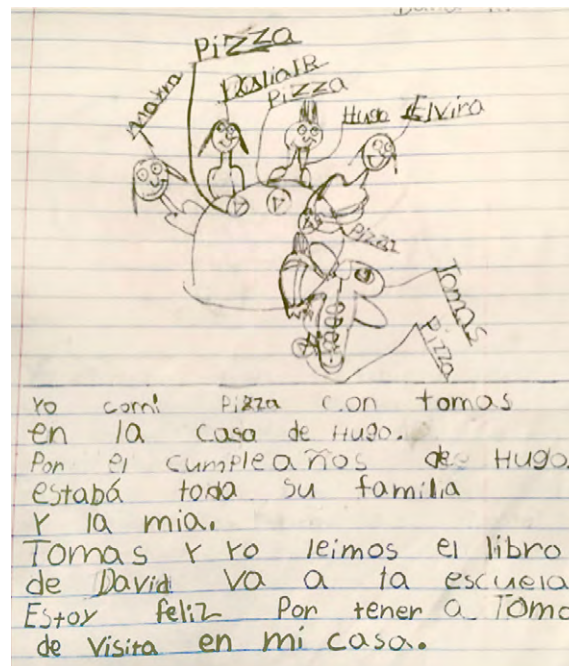 Pizza
mama
Dalia R
Pizza
Hugo
Elvira
Pizza
Tomas
Pizza
Yo comi Pizza con tomas
en la casa de Hugo.
Por el cumpleaños de Hugo.
estabá toda su familia
Y la mia.
Tomas Y Yo leimos el libro
de David Va a la escuela
Estoy feliz Por tener a Toma
de Visita en mi casa.